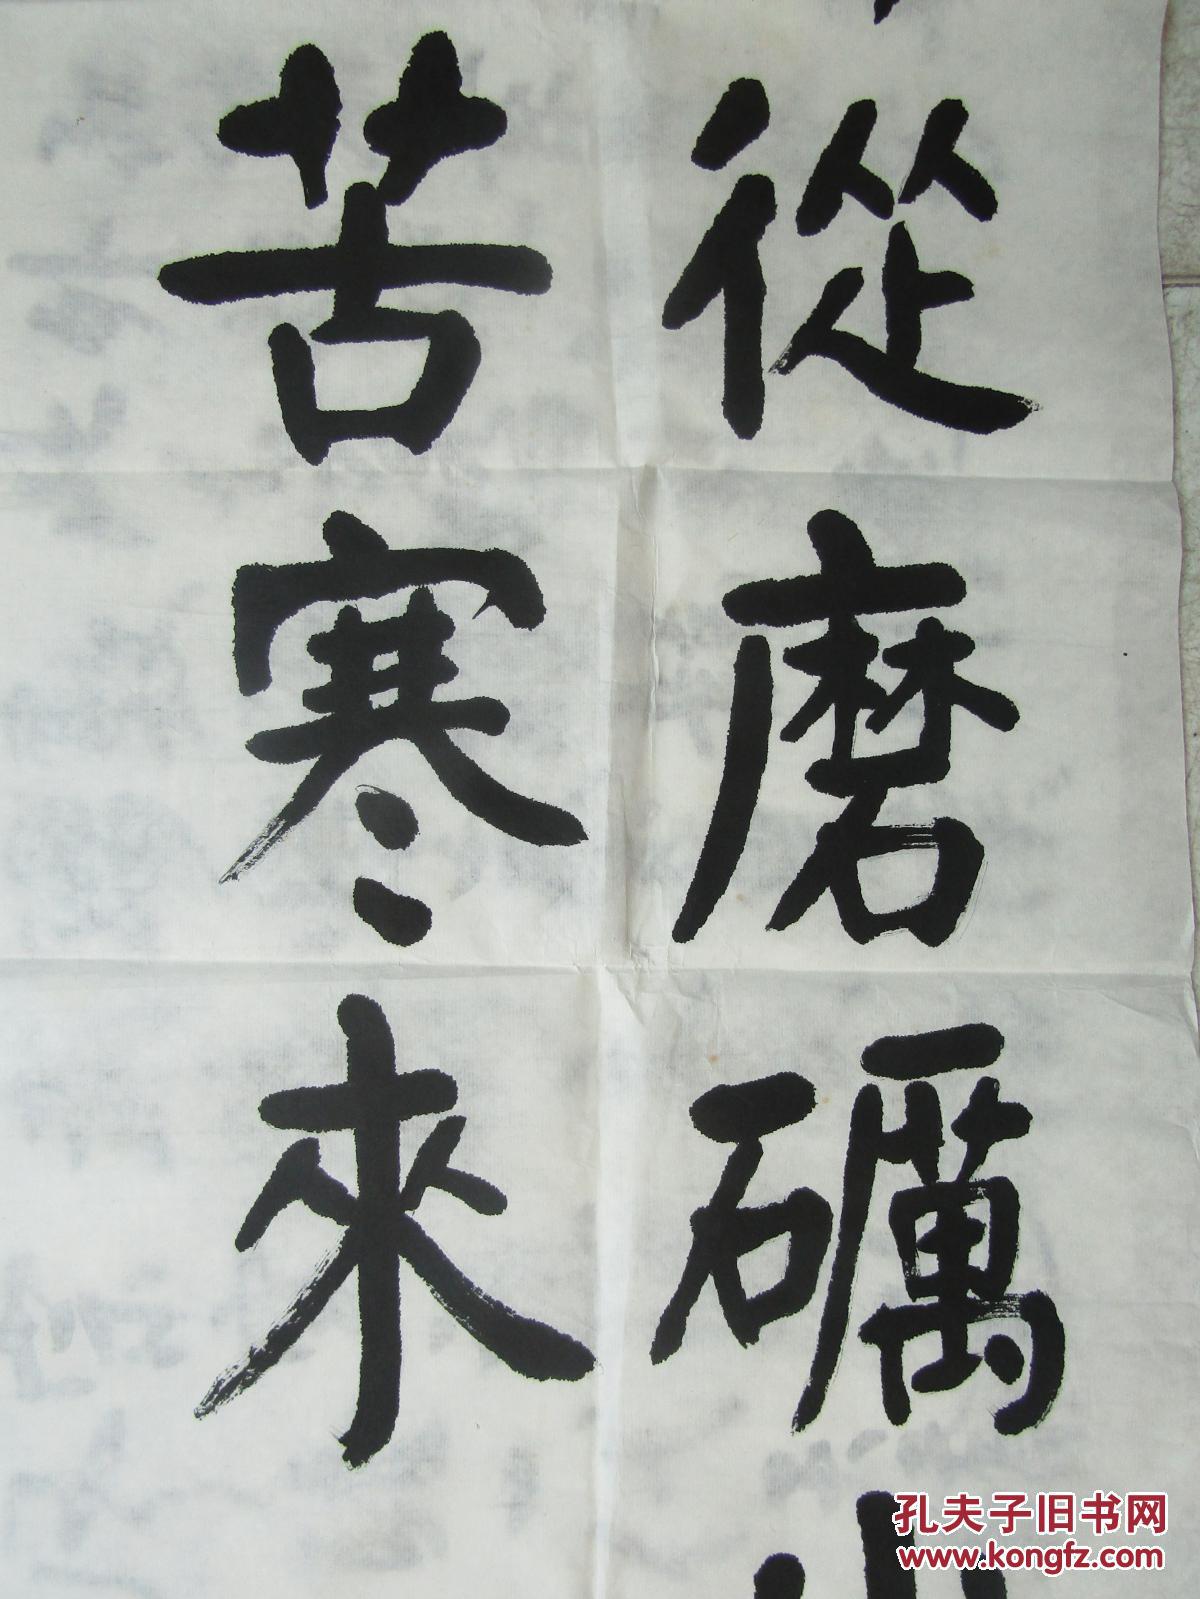 從磨礪
苦寒來
孔夫子旧书网
www.kongfz.com